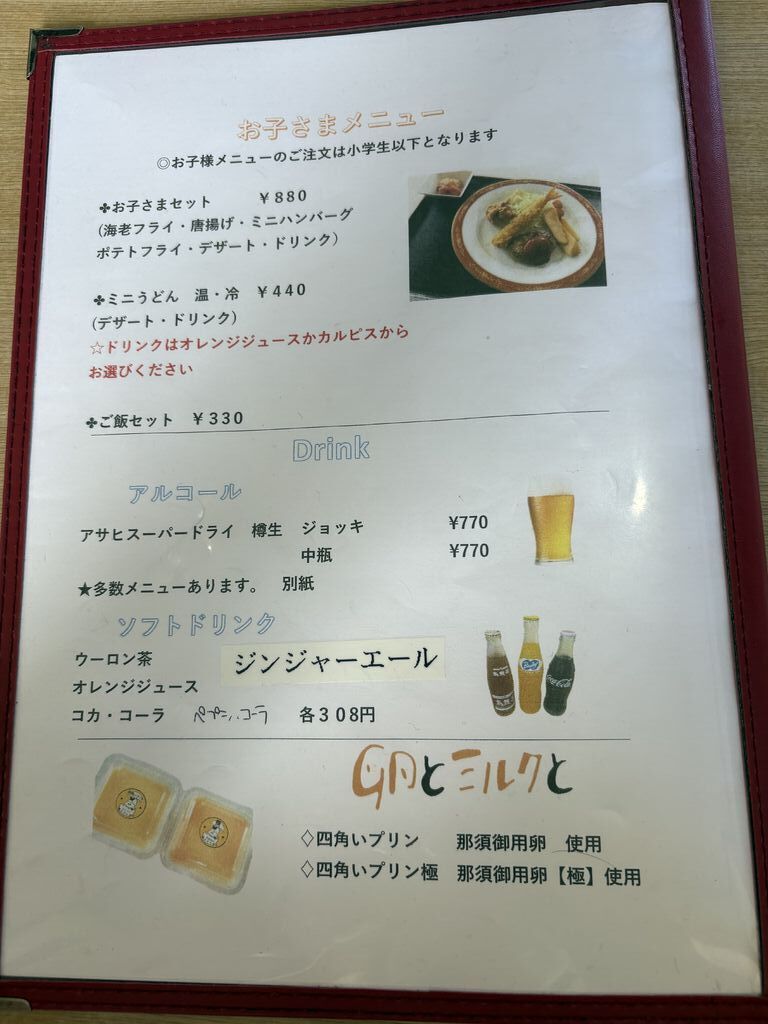 お子さまメニュー
◎お子様メニューのご注文は小学生以下となります
✤お子さまセット　￥880
(海老フライ・唐揚げ・ミニハンバーグ
ポテトフライ・デザート・ドリンク)
✤ミニうどん　温・冷　￥440
(デザート・ドリンク)
☆ドリンクはオレンジジュースかカルピスから
お選びください
✤ご飯セット　￥330
Drink
アルコール
アサヒスーパードライ　樽生　ジョッキ　¥770
中瓶　¥770
★多数メニューあります。　別紙
ソフトドリンク
ウーロン茶　ジンジャーエール
オレンジジュース
コカ・コーラ　ペプシ.コーラ　各308円
Coca-Cola
卵とミルクと
♢四角いプリン　那須御用卵　使用
♢四角いプリン極　那須御用卵【極】使用